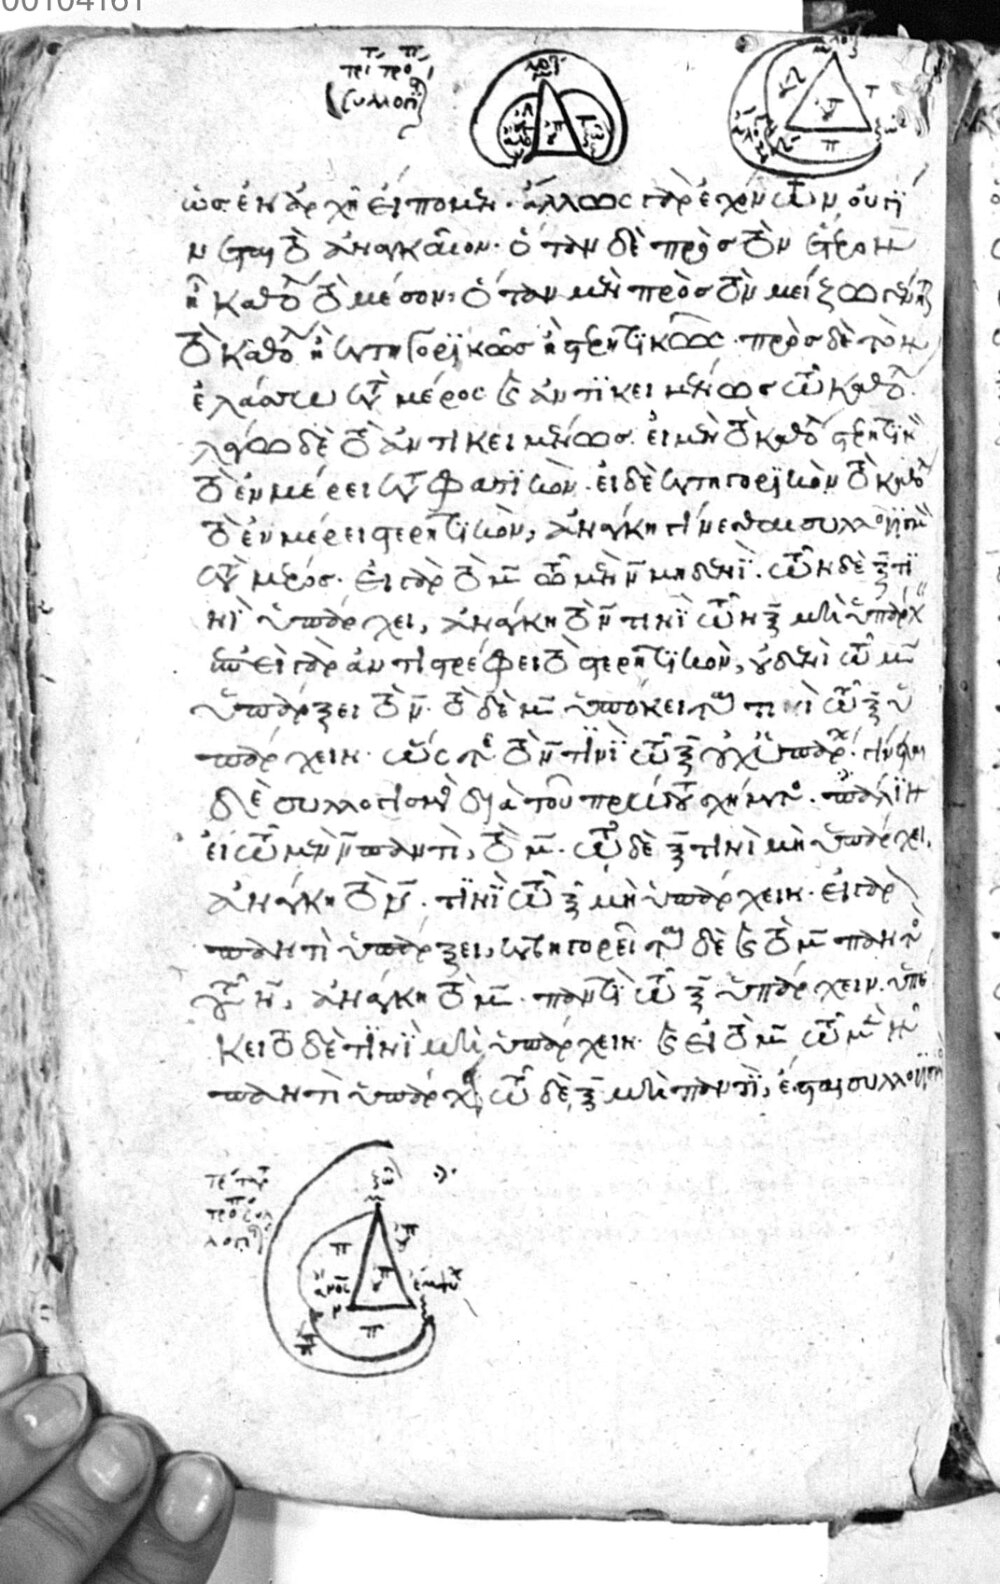 00104161
ὡς ἐν ἀρχῇ εἴπομεν· ἄλλως γὰρ ἐχόντων οὐ γί
νεται τὸ ἀναγκαῖον. ὅταν δὲ πρὸς τὸν ἕτερον
ἢ καθόλου τὸ μέσον, ὅταν μὲν πρὸς τὸν μείζω γένηται
τὸ καθόλου ἢ κατηγορικῶς ἢ στερητικῶς· πρὸς δὲ τὸν
ἐλάττω κατὰ μέρος καὶ ἀντικειμένως τῷ καθόλου·
λέγω δὲ τὸ ἀντικειμένως· εἰ μὲν τὸ καθόλου στερητικὸν
τὸ ἐν μέρει καταφατικόν· εἰ δὲ κατηγορικὸν τὸ καθόλου
τὸ ἐν μέρει στερητικὸν, ἀνάγκη γίνεσθαι συλλογισμὸν
κατὰ μέρος· εἰ γὰρ τὸ μ τῷ μὲν ν μηδενὶ· τῷ δὲ ξ τι
νὶ ὑπάρχει, ἀνάγκη τὸ ν τινὶ τῷ ξ μὴ ὑπάρχ
ἐπεὶ γὰρ ἀντιστρέφει τὸ στερητικὸν, οὐδενὶ τῷ μ
ὑπάρξει τὸ ν· τὸ δὲ μ ὑπόκειται τινὶ τῷ ξ ὑ
πάρχειν· ὥστε τὸ ν τινὶ τῷ ξ οὐχ ὑπάρχ· γίνεται
δὲ συλλογισμὸς διὰ τοῦ πρώτου σχήματος· πάλιν
εἰ τῷ μὲν ν παντὶ, τὸ μ· τῷ δὲ ξ τινὶ μὴ ὑπάρχει,
ἀνάγκη τὸ ν· τινὶ τῷ ξ μὴ ὑπάρχειν· εἰ γὰρ
παντὶ ὑπάρξει, κατηγορεῖται δὲ καὶ τὸ μ παντὸς
τοῦ ν, ἀνάγκη τὸ μ· παντὶ τῷ ξ ὑπάρχειν· ὑπέ
κειτο δὲ τινὶ μὴ ὑπάρχειν· καὶ εἰ τὸ μ τῷ μὲν ν
παντὶ ὑπάρχει, τῷ δὲ ξ μὴ παντὶ, ἔσται συλλογισμὸς